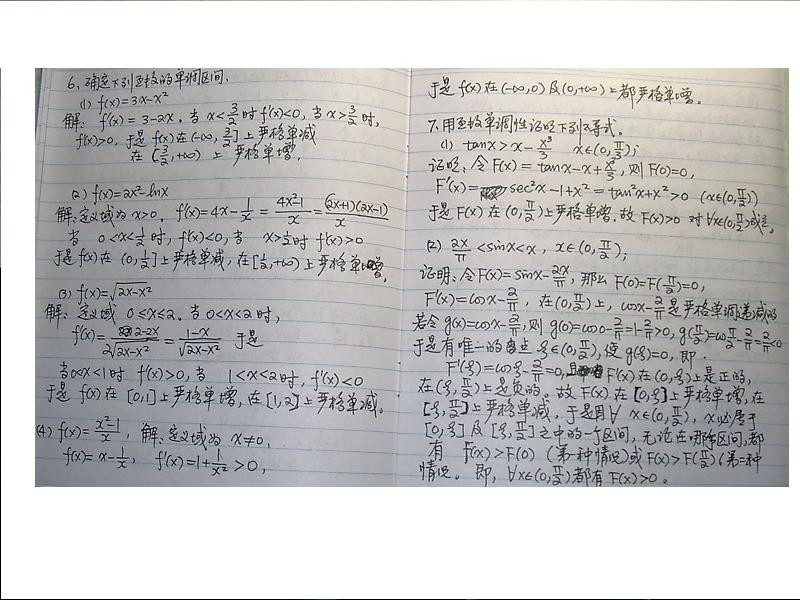 6、确定下列函数的单调区间.
(1) f(x)=3x-x²
解: f'(x)=3-2x. 当 x<3/2 时 f'(x)<0, 当 x>3/2 时,
f'(x)>0, 于是 f(x) 在 (-∞, 3/2] 上严格单减
在 (3/2, +∞) 上 严格单增.
(2) f(x)=2x²-lnx
解: 定义域为 x>0. f'(x)=4x-1/x = (4x²-1)/x = (2x+1)(2x-1)/x
当 0<x<1/2 时, f'(x)<0, 当 x>1/2 时 f'(x)>0
于是 f(x) 在 (0, 1/2] 上严格单减, 在 [1/2, +∞) 上严格单增.
(3) f(x)=√(2x-x²)
解: 定义域 0≤x≤2. 当 0<x<2 时,
f'(x)= (2-2x)/(2√(2x-x²)) = (1-x)/√(2x-x²) 于是
当 0<x<1 时 f'(x)>0, 当 1<x<2 时, f'(x)<0
于是 f(x) 在 [0,1] 上严格单增, 在 [1,2] 上严格单减.
(4) f(x)= (x²-1)/x, 解: 定义域为 x≠0,
f(x)= x-1/x, f'(x)=1+1/x²>0,
于是 f(x) 在 (-∞,0) 及 (0,+∞) 上都严格单增.
7、用函数单调性证明下列不等式.
(1) tanx > x-x³/3 x∈(0, π/2);
证明: 令 F(x)= tanx-x+x³/3, 则 F(0)=0,
F'(x)= sec²x-1+x² = tan²x+x²>0 (x∈(0, π/2))
于是 F(x) 在 (0, π/2) 上严格单增, 故 F(x)>0 对 ∀x∈(0, π/2) 成立.
(2) 2x/π < sinx < x, x∈(0, π/2);
证明: 令 F(x)= sinx-2x/π, 那么 F(0)=F(π/2)=0,
F'(x)= cosx-2/π, 在 (0, π/2) 上, cosx-2/π 是严格单调递减的
若令 g(x)=cosx-2/π, 则 g(0)=cos0-2/π=1-2/π>0, g(π/2)=cosπ/2-2/π=-2/π<0
于是有唯一的点 ξ∈(0, π/2), 使 g(ξ)=0, 即.
F'(ξ)= cosξ-2/π=0, F'(x) 在 (0, ξ) 上是正的,
在 (ξ, π/2) 上是负的. 故 F(x) 在 [0, ξ] 上严格单增, 在
[ξ, π/2] 上严格单减, 于是 ∀ x∈(0, π/2), x 必属于
[0, ξ] 及 [ξ, π/2] 之中的一个区间, 无论在哪个区间, 都
有 F(x)>F(0) (第一种情况) 或 F(x)>F(π/2) (第二种
情况)。即, ∀x∈(0, π/2) 都有 F(x)>0.